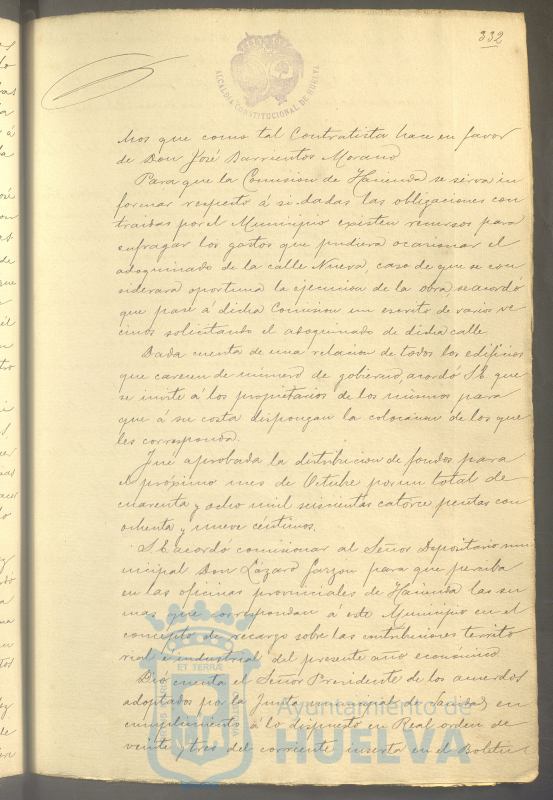 332
ALCALDIA CONSTITUCIONAL DE HUELVA
chos que como tal Contratista hace en favor
de Don José Barrientos Morano
Para que la Comision de Hacienda se sirva in
formar respecto á si dadas las obligaciones con
traidas por el Municipio existen recursos para
sufragar los gastos que pudiera ocasionar el
adoquinado de la calle Nueva, caso de que se con
siderara oportuna la ejecucion de la obra, se acordó
que pase á dicha Comision un escrito de varios ve
cinos solicitando el adoquinado de dicha calle.
Dada cuenta de una relacion de todos los edificios
que carecen de número de gobierno, acordó S.E. que
se invite á los propietarios de los mismos para
que á su costa dispongan la colocacion de los que
les corresponda.
Fue aprobada la distribucion de fondos para
el próximo mes de Octubre por un total de
cuarenta y ocho mil seiscientas catorce pesetas con
ochenta y nueve centimos.
S.E. acordó comisionar al Señor Depositario mu
nicipal Don Lázaro Garzon para que perciba
en las oficinas provinciales de Hacienda las su
mas que correspondan á este Municipio en el
concepto de recargo sobre las contribuciones territo
rial é industrial del presente año económico
Dió cuenta el Señor Presidente de los acuerdos
adoptados por la Junta municipal de Sanidad en
cumplimiento á lo dispuesto en Real orden de
veinte y tres del corriente inserta en el Boletin
ET TERRÆ
Ayuntamiento de
HUELVA